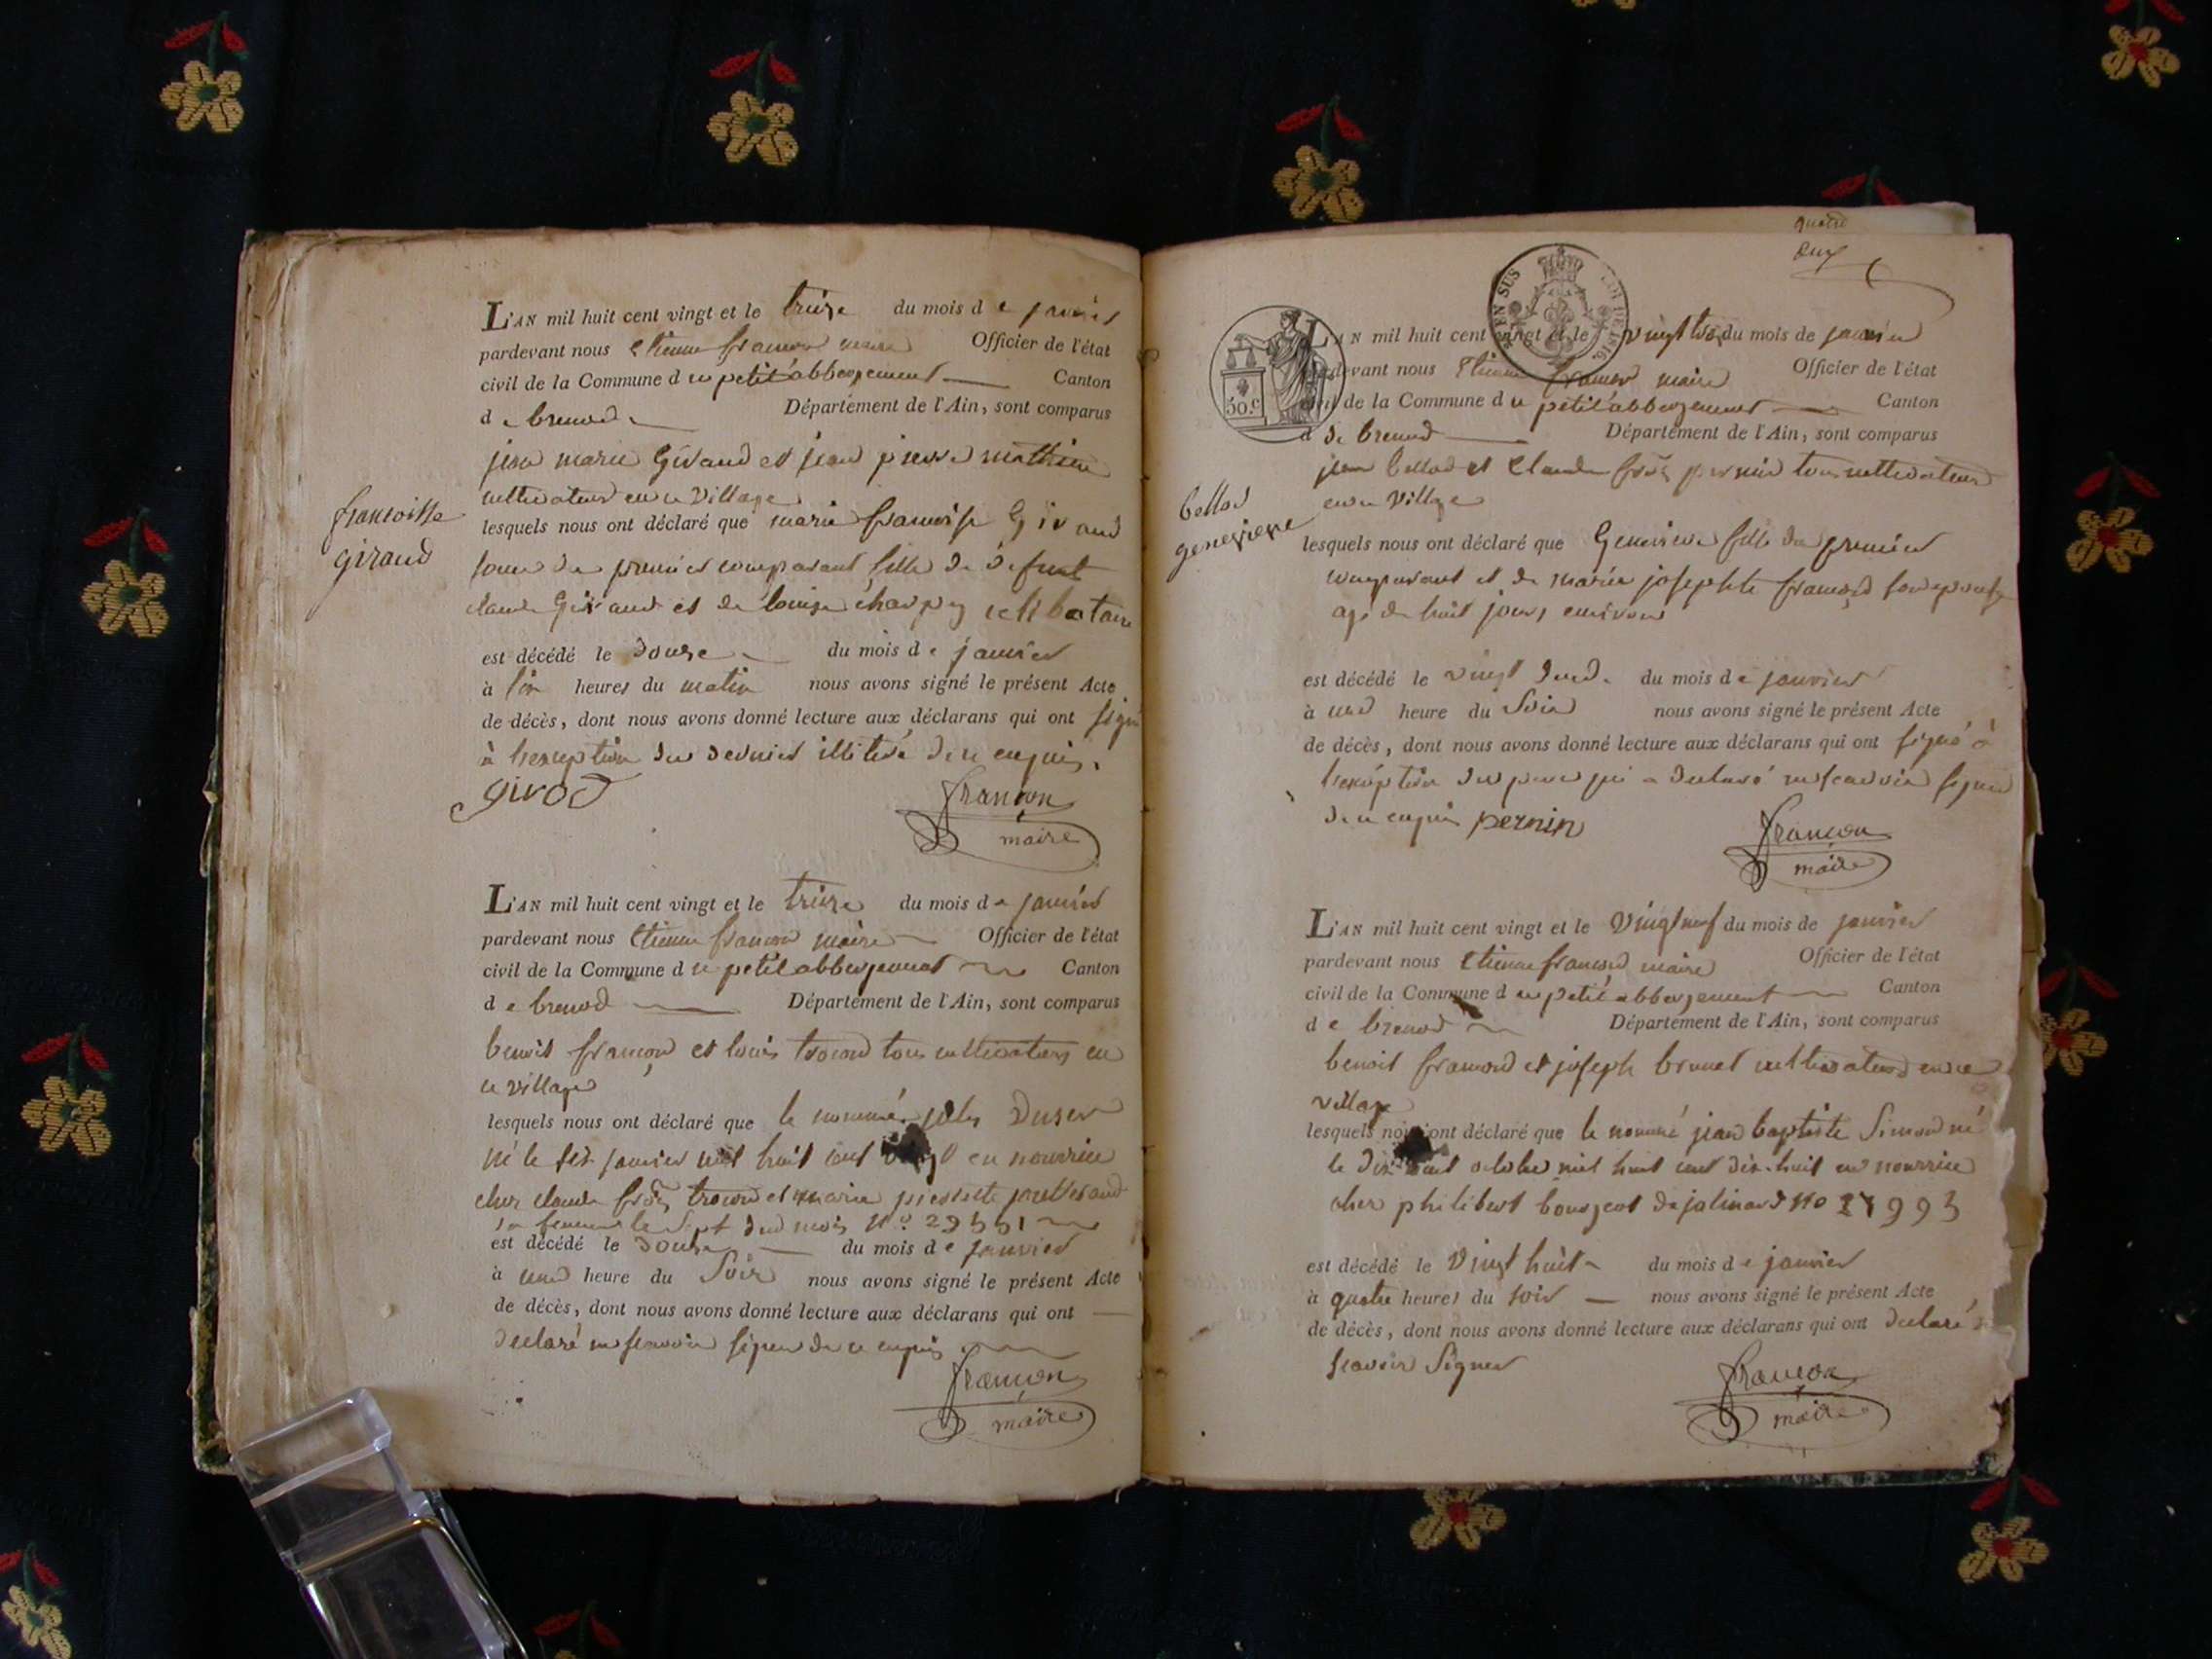 françoisse
giraud
L'AN mil huit cent vingt et le treize du mois de janvier
pardevant nous etienne françon maire Officier de l'état
civil de la Commune d u petit abbergement Canton
d e brenod Département de l'Ain, sont comparus
jean marie Giraud et jean pierre mathieu
cultivateurs en ce village
lesquels nous ont déclaré que marie françoise Giraud
soeur du premier comparant fille de defunt
claude Giraud et de louise charpy celibataire
est décédé le douze du mois de janvier
à six heures du matin nous avons signé le présent Acte
de décès, dont nous avons donné lecture aux déclarans qui ont signé
à l'exception du dernier illiteré de ce enquis.
girod
françon
maire
L'AN mil huit cent vingt et le treize du mois de janvier
pardevant nous etienne françon maire Officier de l'état
civil de la Commune d u petit abbergement Canton
d e brenod Département de l'Ain, sont comparus
benoit françon et louis trocon tous cultivateurs en
ce village
lesquels nous ont déclaré que le nommé jules
né le six janvier mil huit cent vingt en nourrice
cher claude trocon et marie
sa femme le sept dud mois N.o 29551
est décédé le douze du mois de janvier
à une heure du Soir nous avons signé le présent Acte
de décès, dont nous avons donné lecture aux déclarans qui ont
declaré ne scavoir signer de ce enquis
françon
maire
quatre
EN SUS
30.c
bellod
genevieve
L'AN mil huit cent vingt et le vingt trois du mois de janvier
pardevant nous Etienne françon maire Officier de l'état
civil de la Commune d u petit abbergement Canton
d de brenod Département de l'Ain, sont comparus
jean bellod et Claude frois pernin tous cultivateurs
en ce village
lesquels nous ont déclaré que Genevieve fille du premier
comparant et de marie josephte françon son epouse
agé de huit jours environ
est décédé le vingt deux du mois de janvier
à une heure du Soir nous avons signé le présent Acte
de décès, dont nous avons donné lecture aux déclarans qui ont signé à
l'exception du pere qui a declaré ne scavoir signer
de ce enquis pernin
françon
maire
L'AN mil huit cent vingt et le vingt neuf du mois de janvier
pardevant nous etienne françon maire Officier de l'état
civil de la Commune d u petit abbergement Canton
d e brenod Département de l'Ain, sont comparus
benoit françon et joseph brunet cultivateurs en ce
village
lesquels nous ont déclaré que le nommé jean baptiste Simon né
le octobre mil huit cent dix-huit en nourrice
cher philibert bourgeot de jalinard No 27993
est décédé le vingt huit du mois de janvier
à quatre heures du soir nous avons signé le présent Acte
de décès, dont nous avons donné lecture aux déclarans qui ont declaré
scavoir Signer
françon
maire